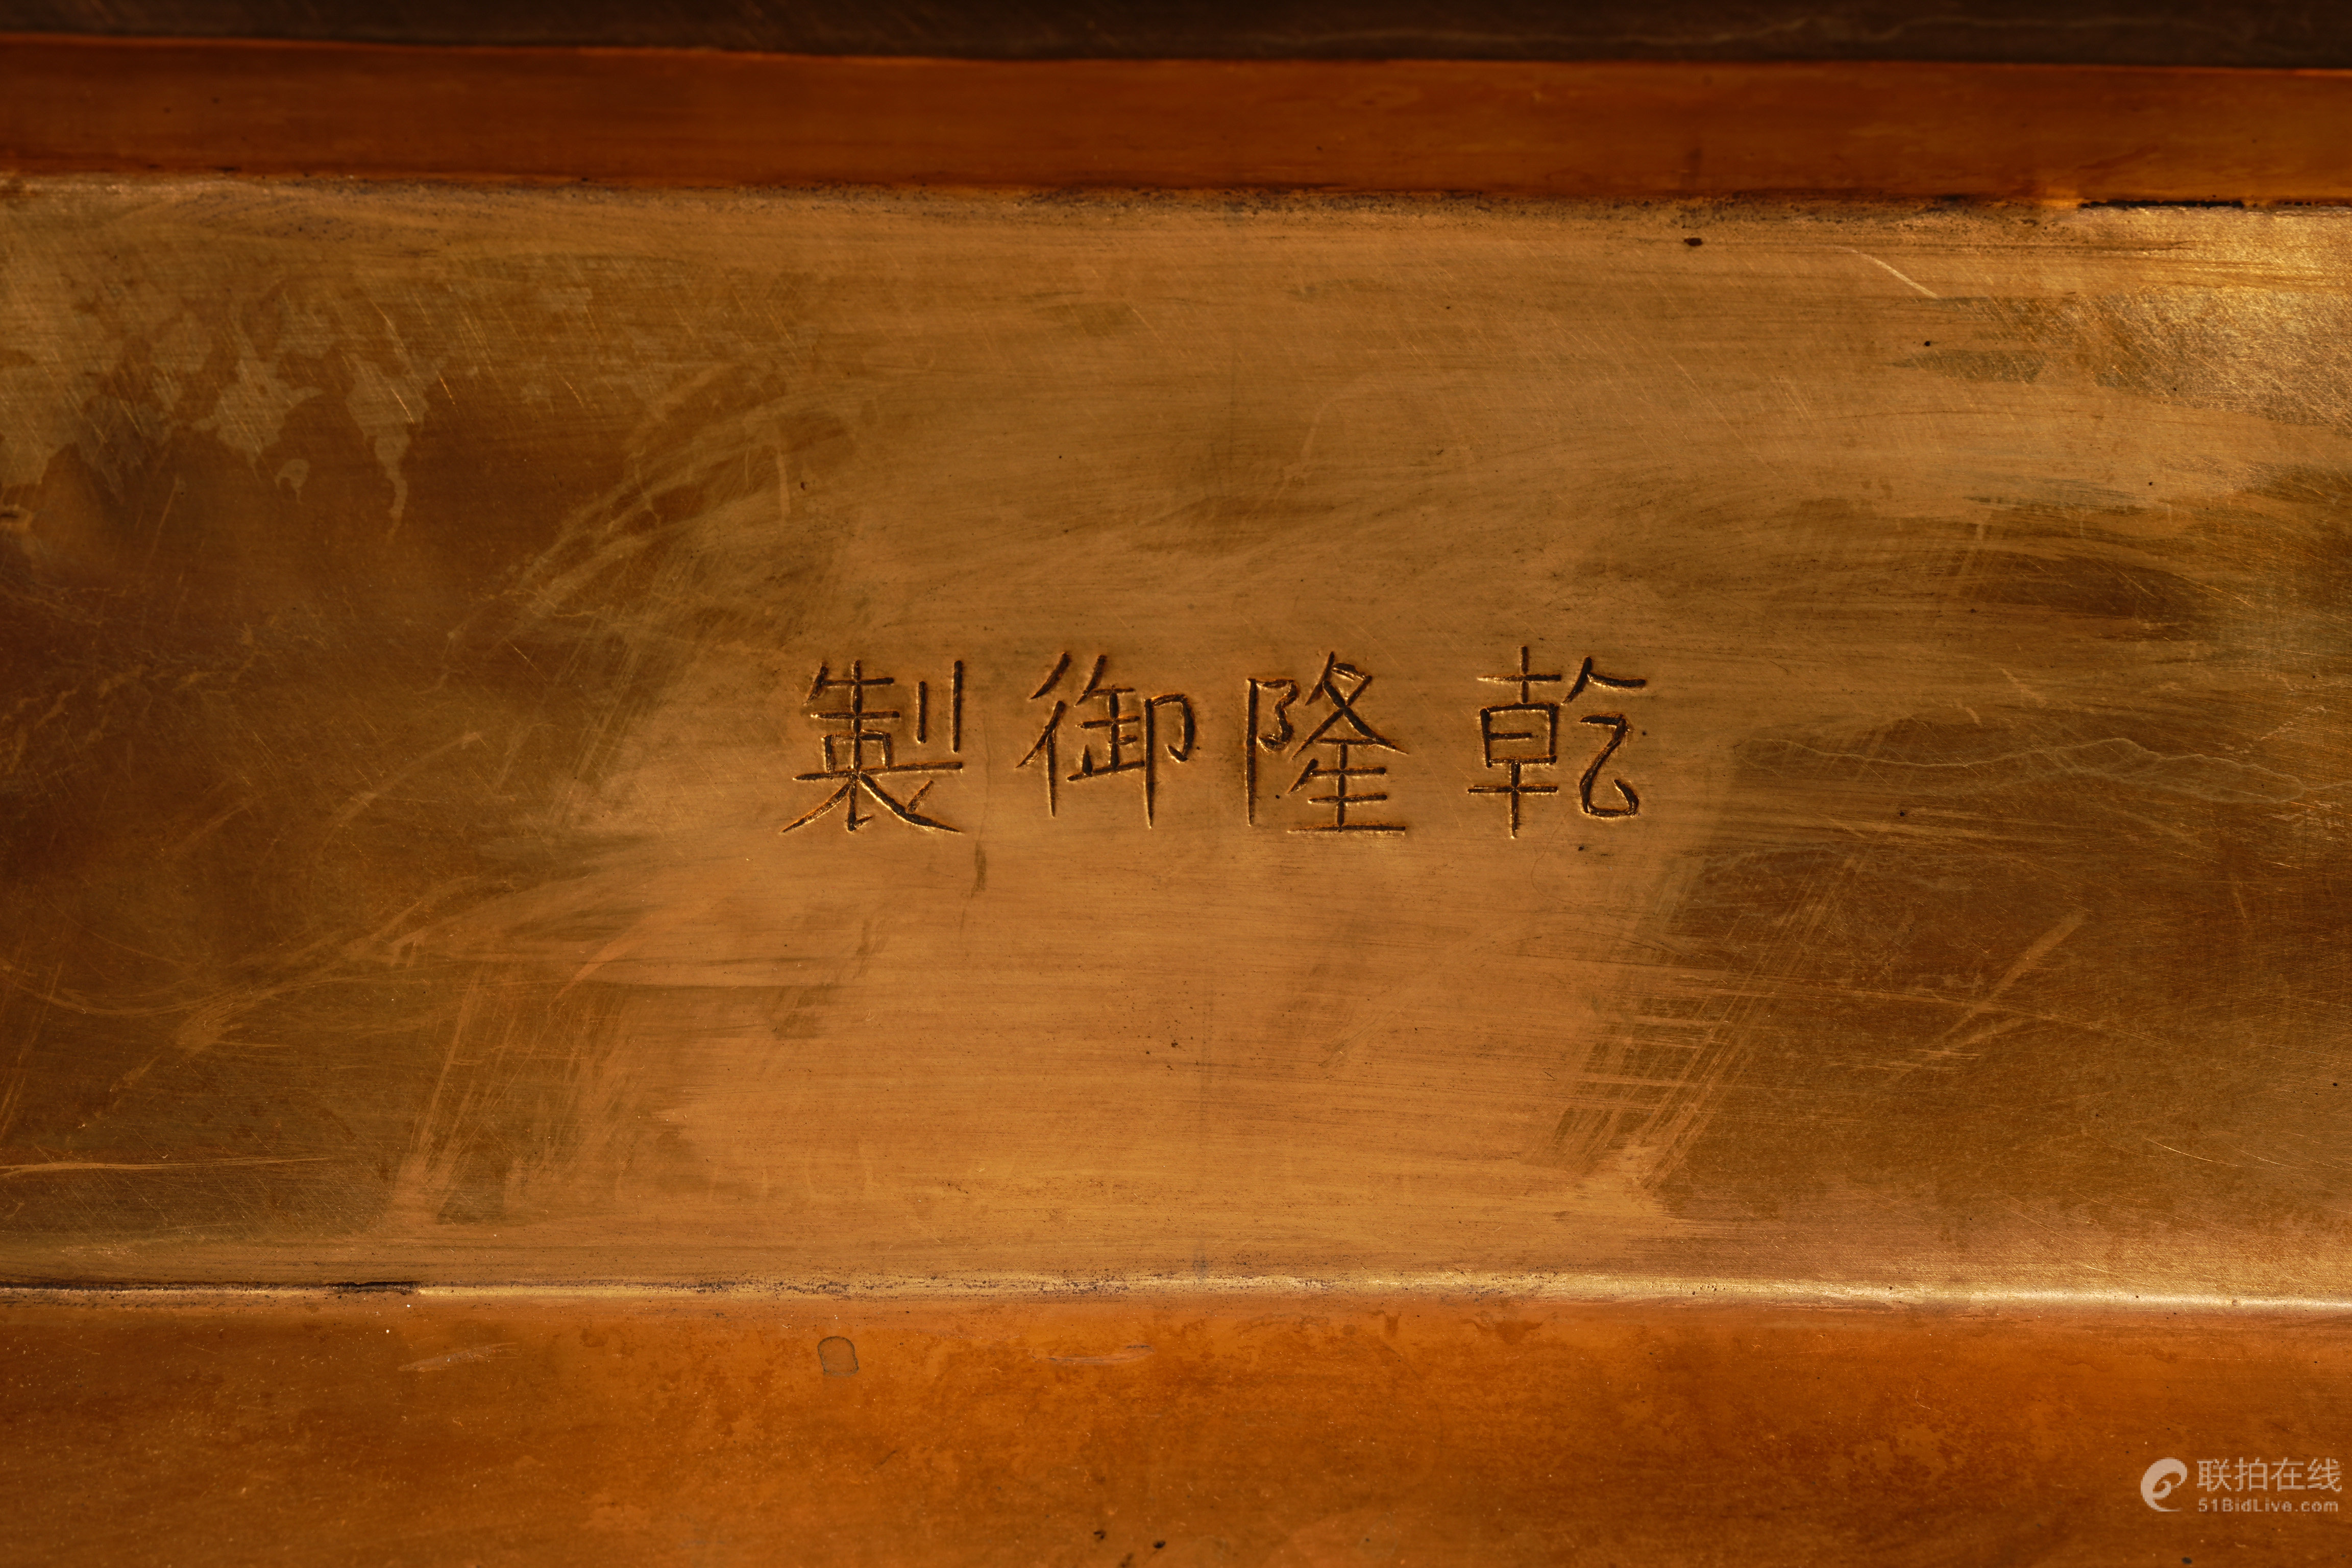 乾隆御製
联拍在线
51BidLive.com